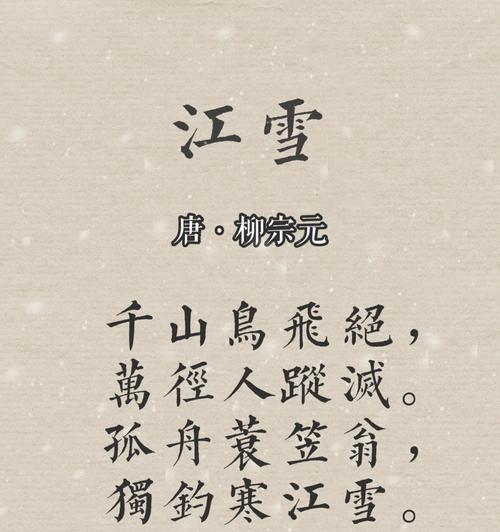 江雪
唐·柳宗元
千山鳥飛絕，
萬徑人蹤滅。
孤舟蓑笠翁，
獨釣寒江雪。